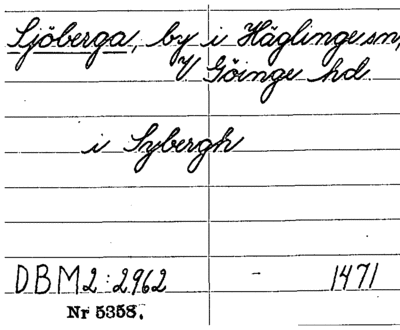 Sjöberga, by i Häglinge sn,
V Göinge hd.
i Sybergh
DBM2:2962 - 1471
Nr 5358.